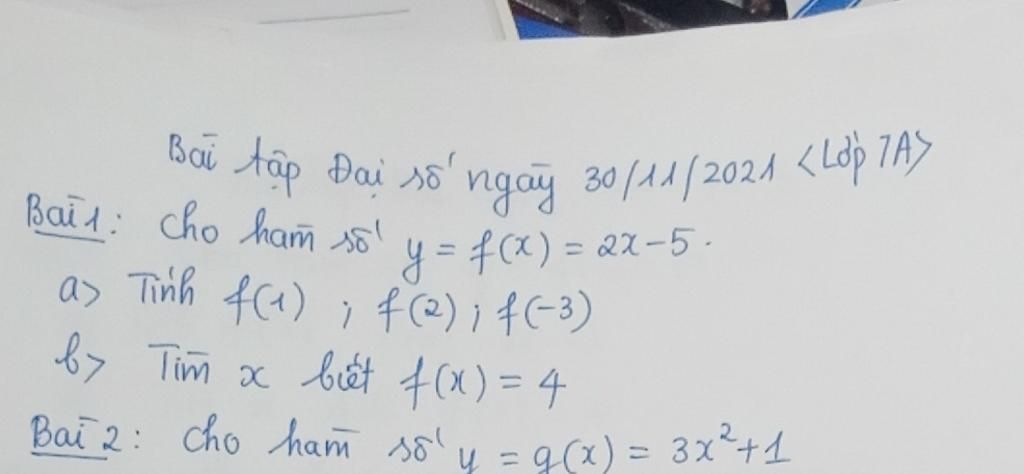 Bài tập Đại số ngày 30/11/2021 <Lớp 7A>
Bài 1: Cho hàm số y = f(x) = 2x-5.
a> Tính f(1) ; f(2) ; f(-3)
b> Tìm x biết f(x) = 4
Bài 2: Cho hàm số y = g(x) = 3x²+1